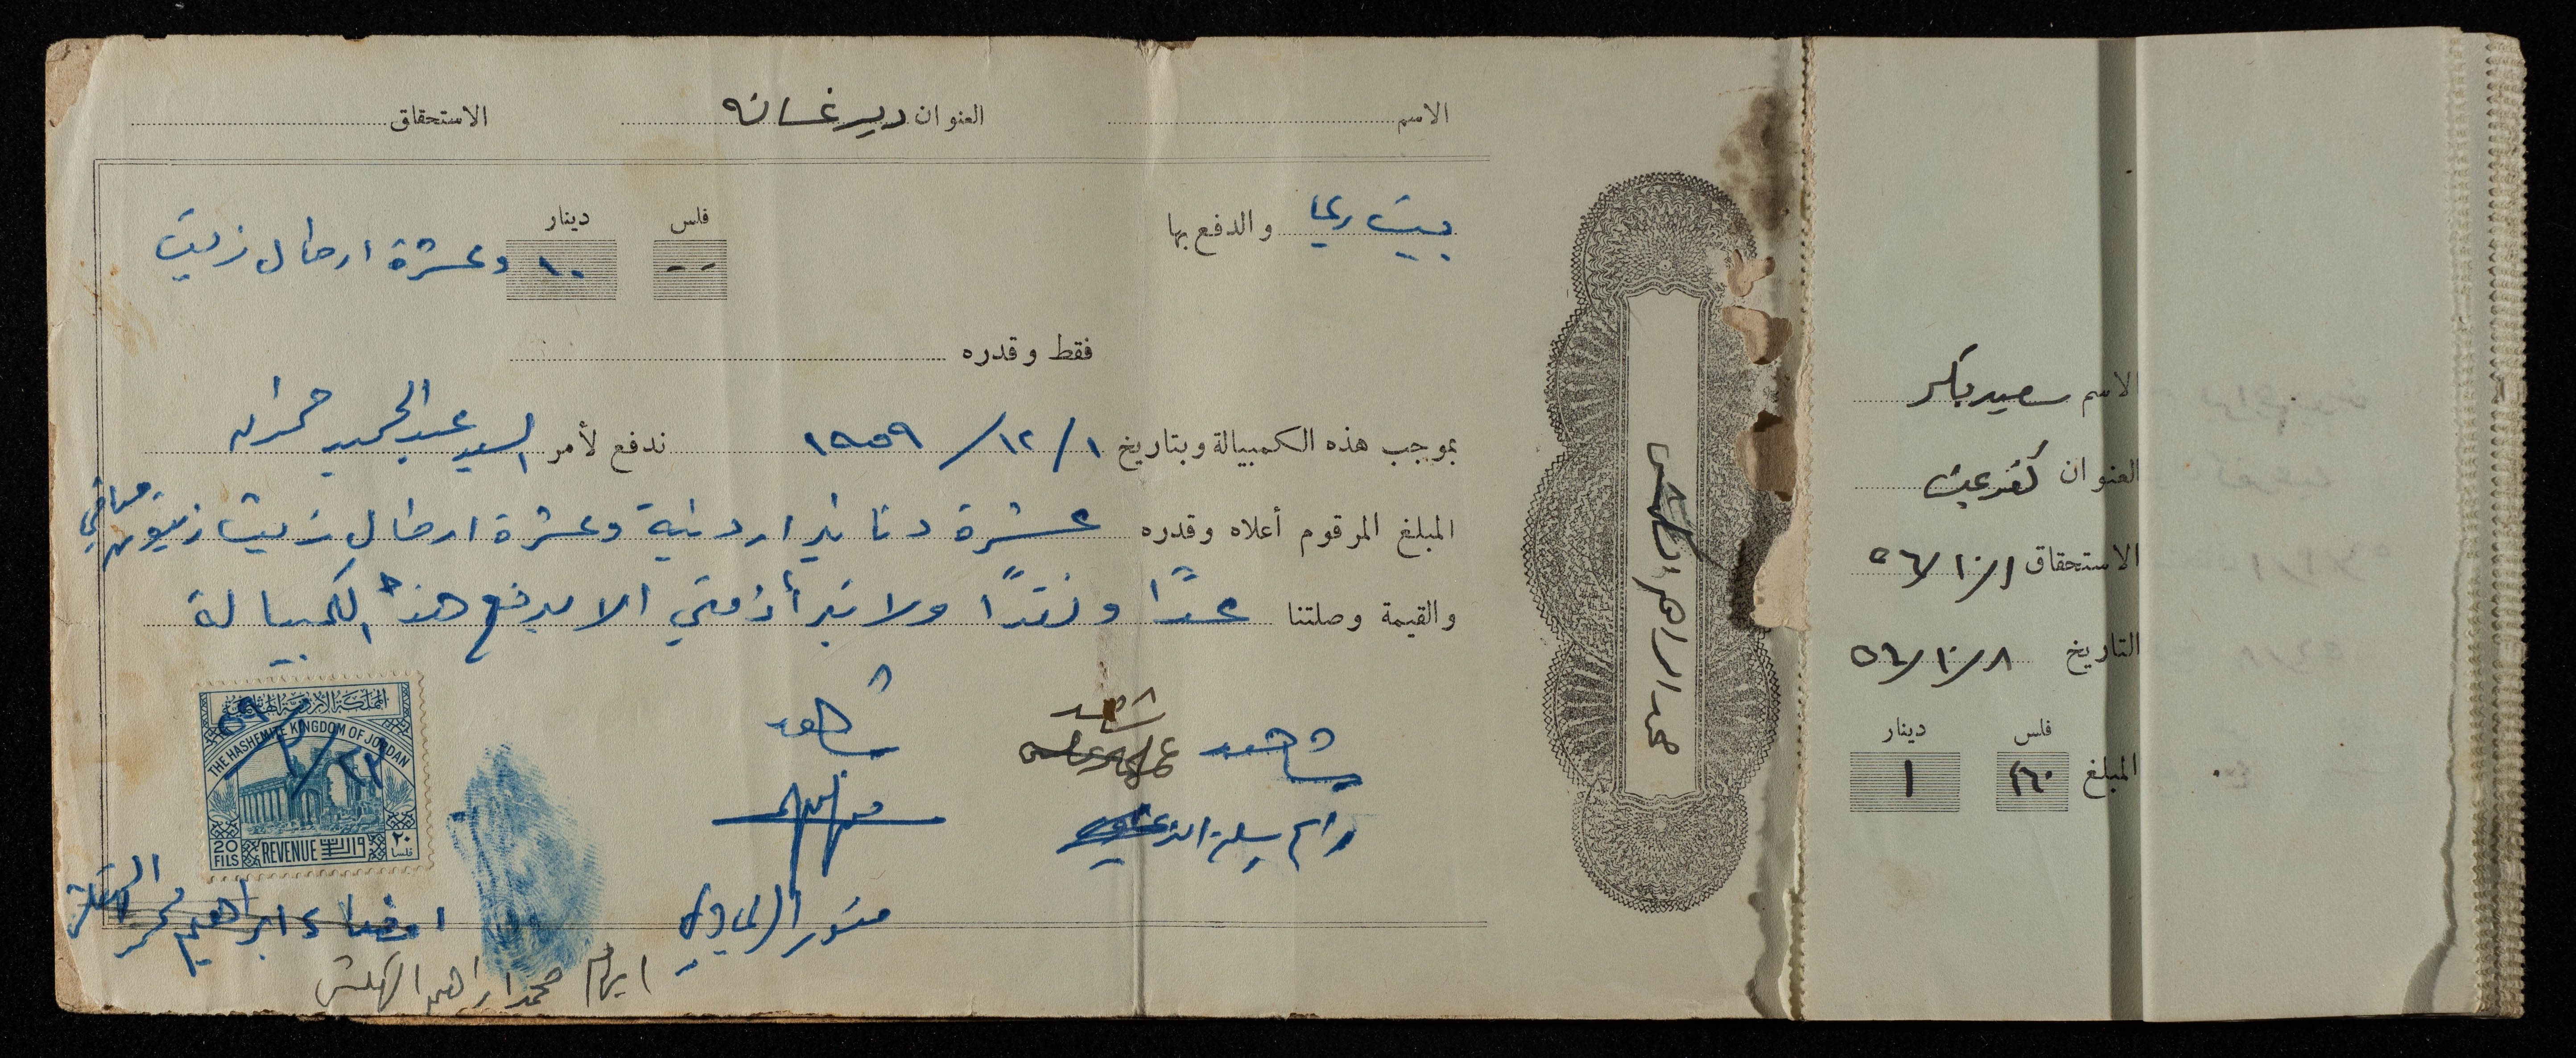 الاسم العنوان ديرغسانه الاستحقاق
بيت ريما والدفع بها
فلس دينار
-- ١٠ وعشرة ارطال زيت
فقط وقدره
بموجب هذه الكمبيالة وبتاريخ ١/١٢/١٩٥٩ ندفع لأمر السيد عبدالحميد حمدان
المبلغ المرقوم أعلاه وقدره عشرة دنانير اردنية وعشرة ارطال زيت زيتون صافي
والقيمة وصلتنا عدًا ونقدًا ولا تبرأ ذمتي الا بدفع هذه الكمبيالة
شاهد
شاهد
شاهد
منور الريماوي
امضاء ابراهيم محمد
ابهام محمد ابراهيم
المملكة الأردنية الهاشمية
THE HASHEMITE KINGDOM OF JORDAN
٢٢/٣/٥٩
20 FILS REVENUE ٢٠ فلسا
محمد ابراهيم
الاسم سعيد بكر
العنوان كفرعين
الاستحقاق ١/١٠/٥٦
التاريخ ٨/١٠/٥٦
فلس دينار
المبلغ ٤٦٠ ١